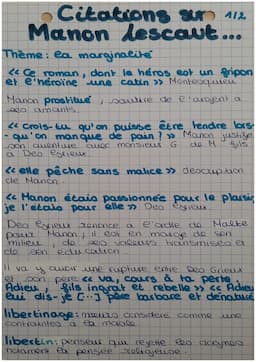 Citations sur 1/2
Manon Lescaut...
Thème: la marginalité
<< Ce roman, dont le héros est un fripon
et l'héroïne une catin >> Montesquieu
Manon prostitué, soutire de l'argent à
ses amants.
<< Crois-tu qu'on puisse être tendre lors-
-qu'on manque de pain? >> Manon justifie
son aventure avec monsieur G de M fils
à Des Grieux
<< elle pêche sans malice >> description
de Manon.
<< Manon était passionnée pour le plaisir,
je l'étais pour elle >> Des Grieux.
Des Grieux renonce à l'ordre de Malte
pour Manon, il est en marge de son
milieu, de ses valeurs transmises et
de son éducation
Il va y avoir une rupture entre Des Grieux
et son père << va, cours à ta perte,
Adieu, fils ingrat et rebelle >> << Adieu
lui dis-je [...] père barbare et dénaturé
libertinage: mœurs considéré comme une
contraintes à la morale
libertin: penseur qui rejette les dogmes
notamment la pensée religieuse.